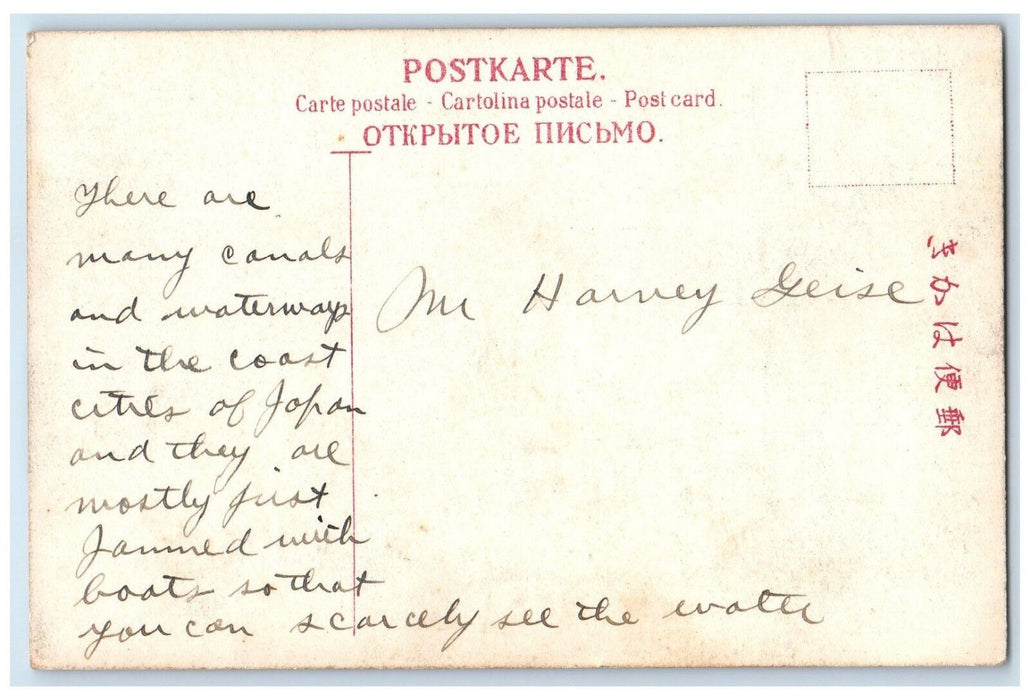 POSTKARTE.
Carte postale - Cartolina postale - Post card.
ОТКРЫТОЕ ПИСЬМО.
There are
many canals
and waterways
in the coast
cities of Japan
and they are
mostly just
Jammed with
boats so that
you can scarcely see the water
Mr Harvey Geise
きかは便郵